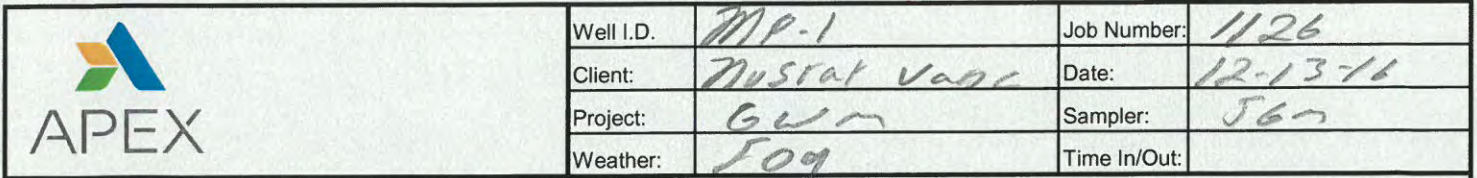 APEX
Well I.D. MP-1 Job Number: 1126
Client: NuStar Vanc Date: 12-13-16
Project: GWM Sampler: JGM
Weather: Fog Time In/Out: